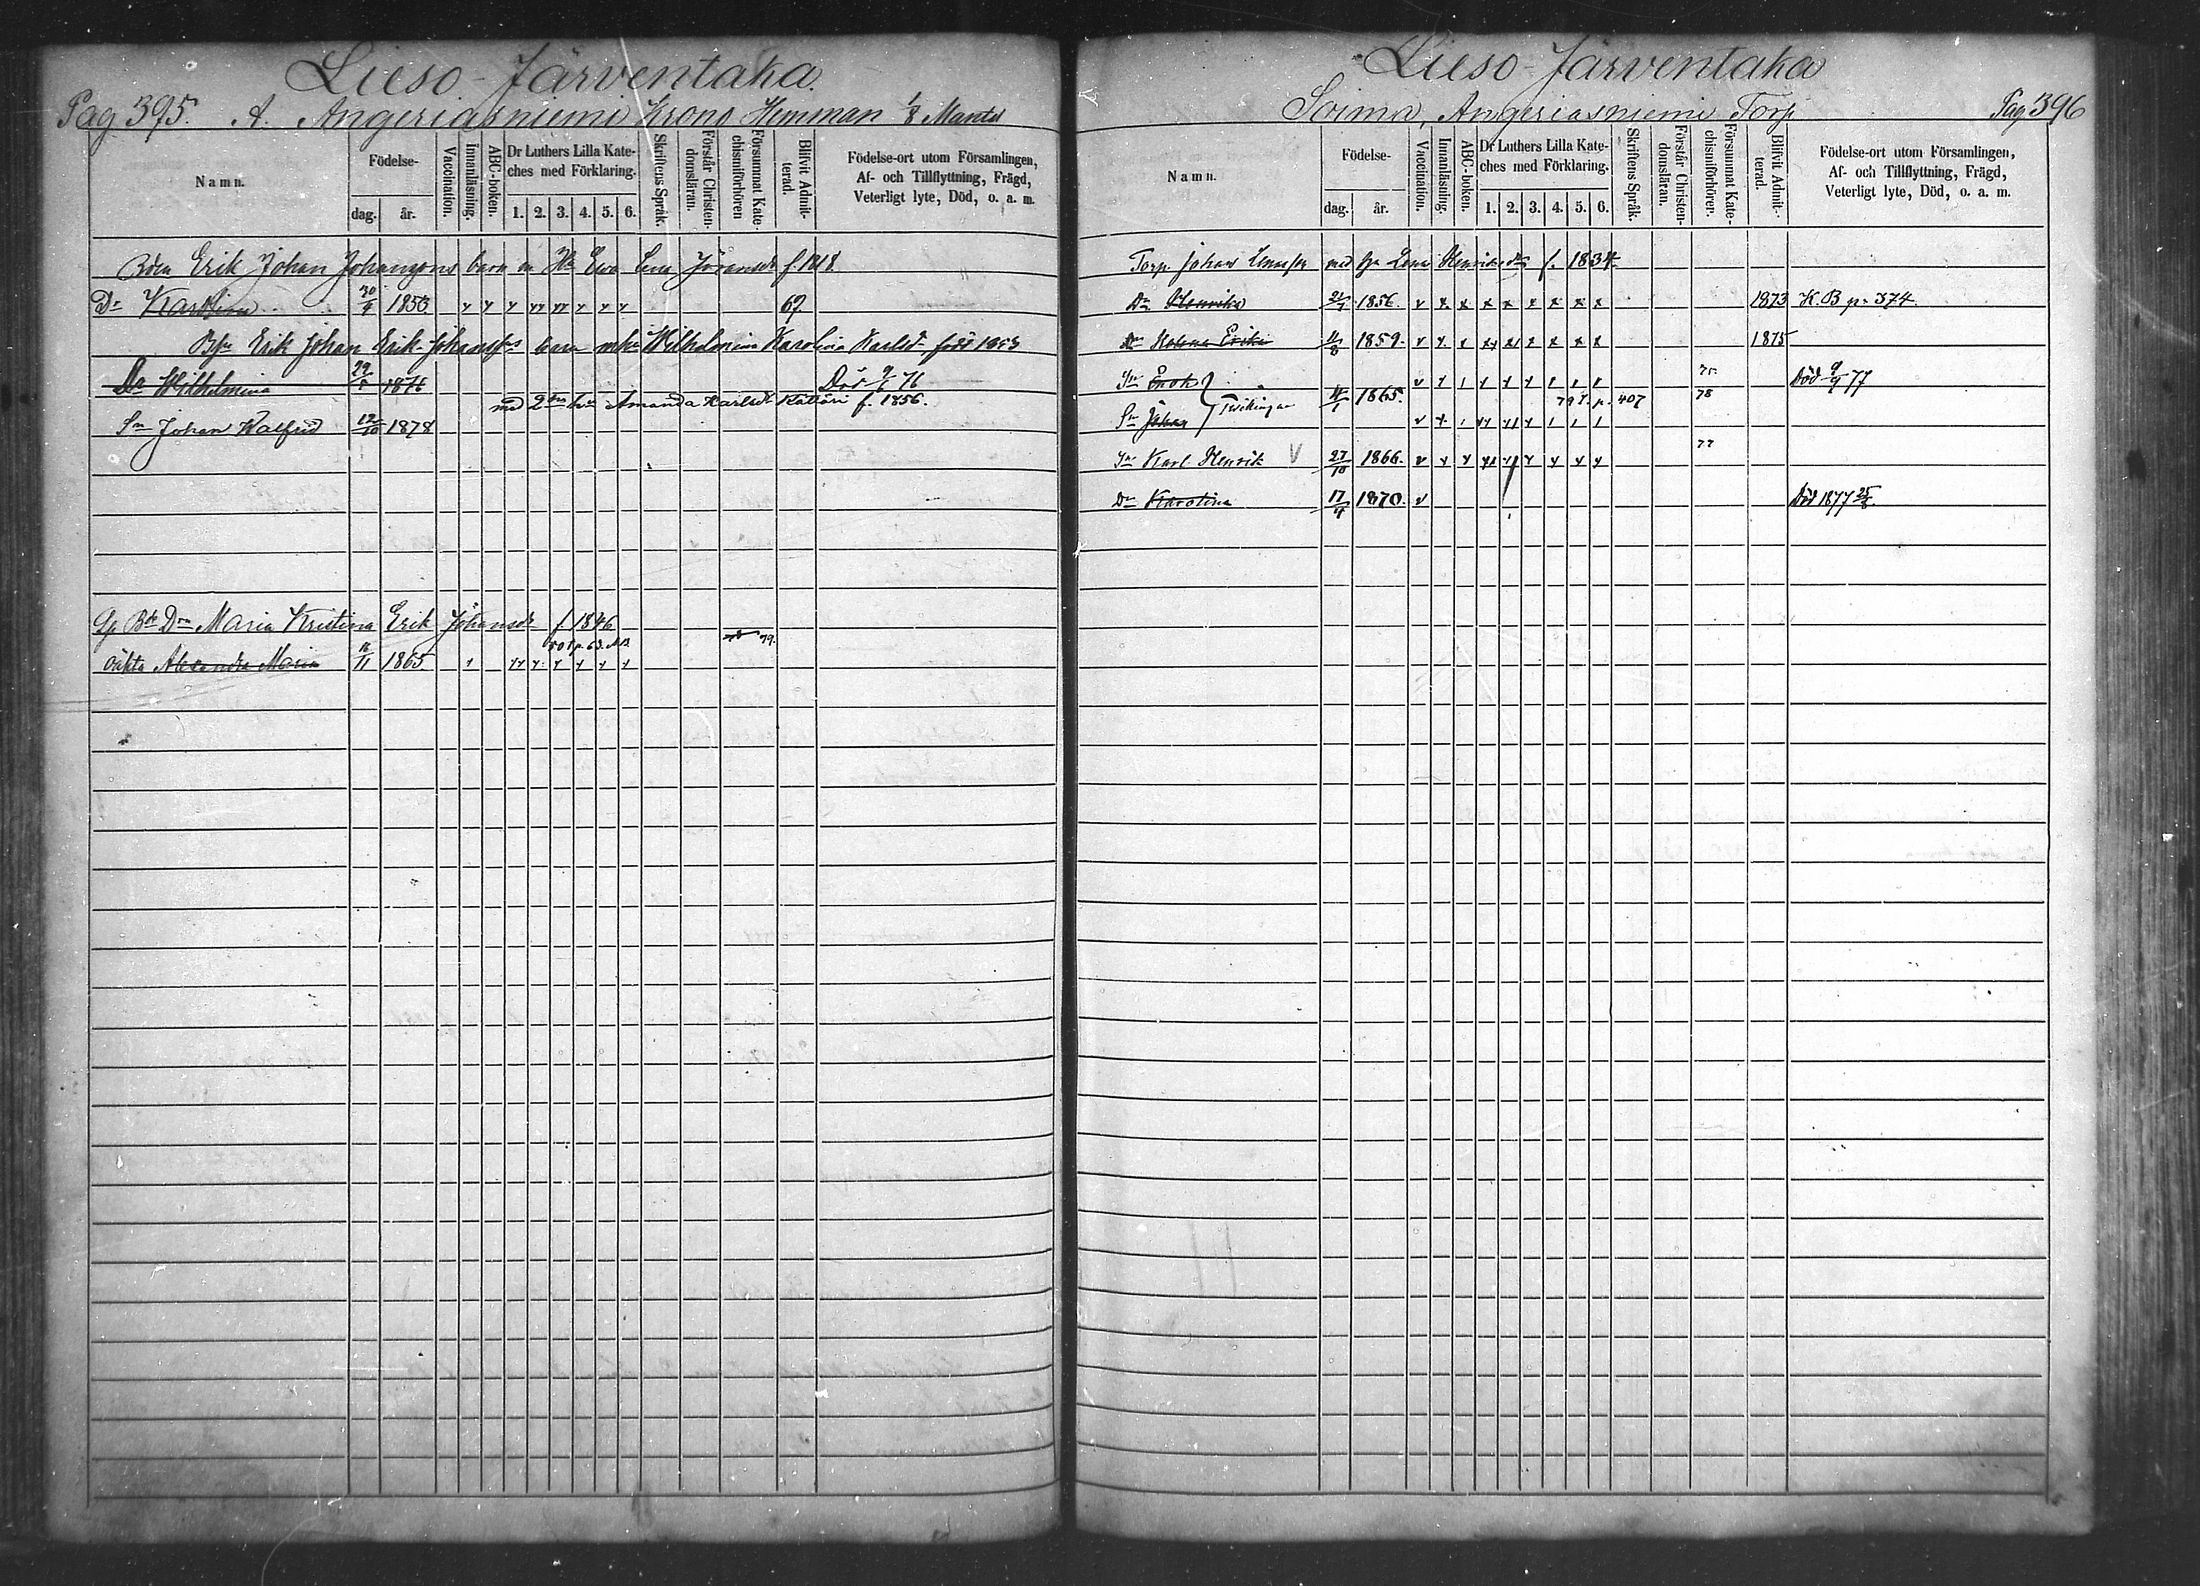 Lieso-Järventaka.
Pag 395. A. Angeriasniemi Krono Hemman 1/8 Mantal
Namn.
Födelse-
dag. år.
Vaccination.
Innanläsning.
ABC-boken.
Dr Luthers Lilla Kateches med Förklaring.
1. 2. 3. 4. 5. 6.
Skriftens Språk.
Förstår Christendomsläran.
Försummat Katechismiförhören
Blifvit Admitterad.
Födelse-ort utom Församlingen,
Af- och Tillflyttning, Frägd,
Veterligt lyte, Död, o. a. m.
Erik Johan Johansons barn Eva Lena Göransdr f. 1818.
Dr Karolina 30/9 1850 67.
Erik Johan Erik Johansson barn m hu Wilhelmina Karolina Karlsdr född 1853
Dr Wilhelmina 1876 Död 9/ 76
med 2dra hu Amanda Karlsdr f. 1856.
Sn Johan Walfrid 12/10 1878
Maria Kristina Erik Johansdr f. 1846
79.
oäkta Alexandra Maria 16/11 1865
Lieso-Järventaka
Soima, Angeriasniemi Torp Pag 396
Namn.
Födelse-
dag. år.
Vaccination.
Innanläsning.
ABC-boken.
Dr Luthers Lilla Kateches med Förklaring.
1. 2. 3. 4. 5. 6.
Skriftens Språk.
Förstår Christendomsläran.
Försummat Katechismiförhörer.
Blifvit Admitterad.
Födelse-ort utom Församlingen,
Af- och Tillflyttning, Frägd,
Veterligt lyte, Död, o. a. m.
Torp. Johan med hu Lena Henriksdr f. 1834
Dr Henrika 1856. 1873 K.B p. 374.
Dr Helena Erika 11/8 1859. 1875
Sn Enok 75 Död 9/9 77
Tvillingar 1865. 79 p. 407 78
Sn Johan
Sn Karl Henrik V 27/10 1866. 77
Dr Karolina 17/4 1870. Död 1877